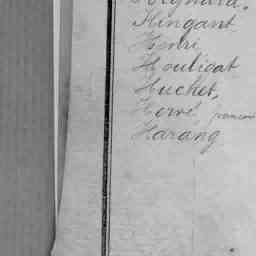 Hingant
Henri
Houligat
Huchet,
Hervé
Harang